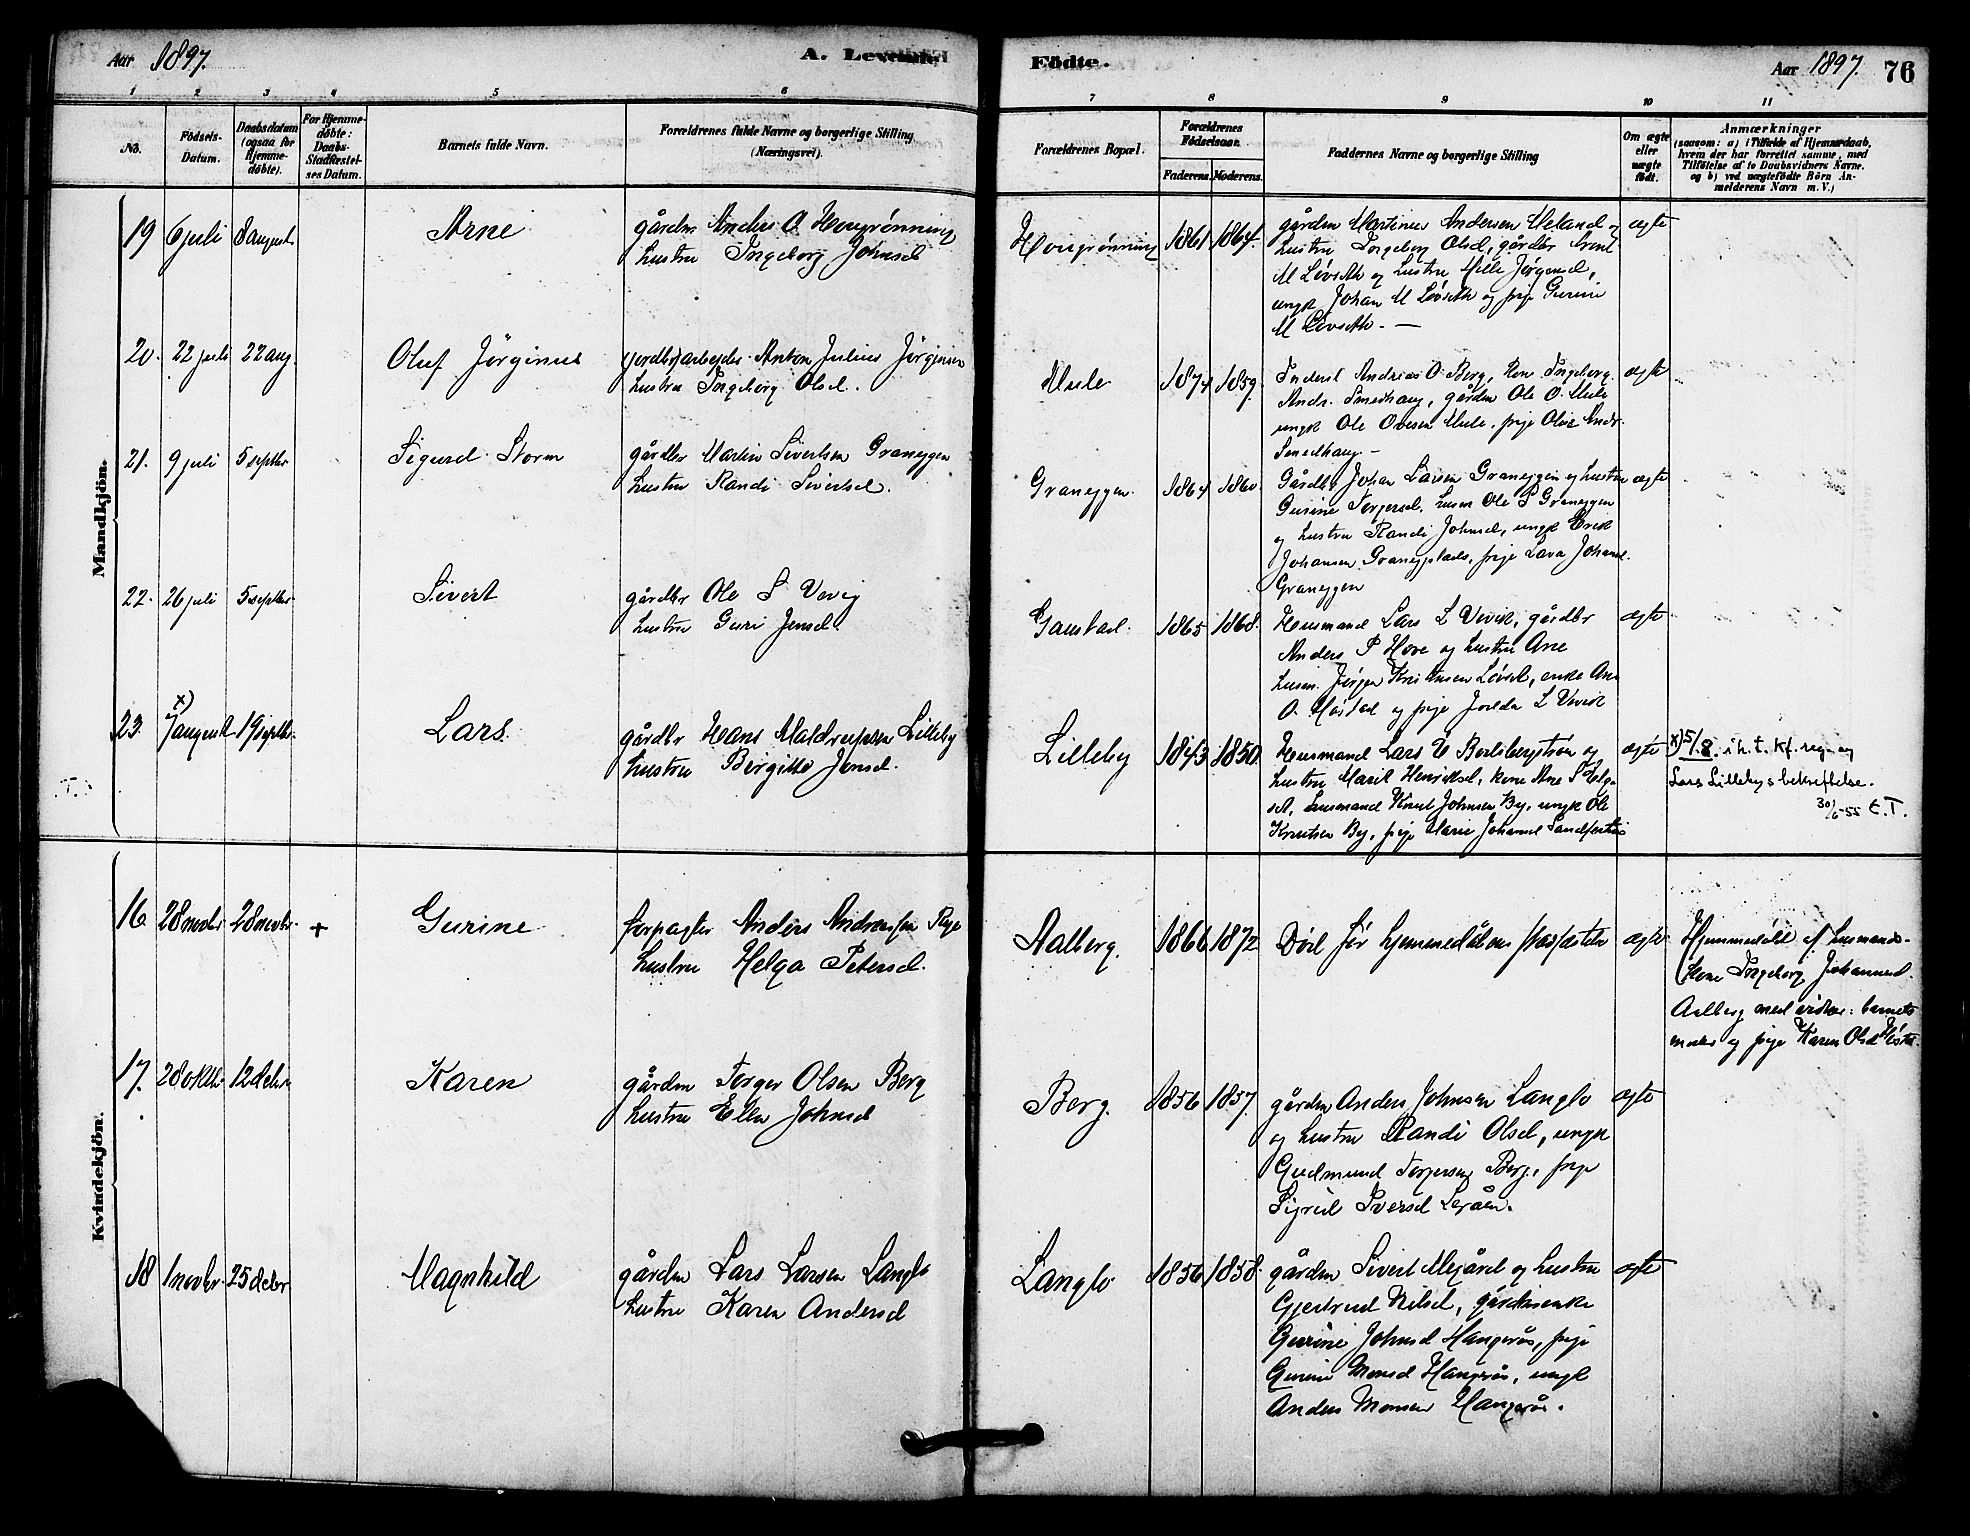 Aar 1897.
A. Levende
Födte.
Aar 1897. 76
1 2 3 4 5 6 7 8 9 10 11
No.
Födsels-
Datum.
Daabsdatum
(ogsaa for
Hjemme-
døbte).
For Hjemme-
døbte:
Daabs-
Stadfæstel-
ses Datum.
Barnets fulde Navn.
Forældrenes fulde Navne og borgerlige Stilling
(Næringsvei).
Forældrenes Bopæl.
Forældrenes
Födselsaar.
Faderens. Moderens.
Faddernes Navne og borgerlige Stilling
Om ægte
eller
uægte
födt.
Anmærkninger
(saasom: a) i Tilfælde af Hjemmedaab,
hvem der har forrettet samme, med
Tilföielse af to Daabsvidners Navne.
og b) ved uægtefödte Börn An-
melderens Navn m. V.)
Mandkjön.
19 6 juli 8 august Arne
gårdbr Anders O Hougrønning
hustru Ingeborg Johnsd
Hougrønning 1861 1864.
gårdm Martinus Andersen Meland og
hustru Ingeborg Olsd, gårdbr
M Løvseth og hustru Jørgensd,
ungk Johan M Løvseth og pige Gurine
M Løvseth. —
ægte
20. 22 juli 22 aug. Oluf Jørginus
(jordbr)arbejder Anton Julius Jørgensen
hustru Ingeborg Olsd.
Mule 1874 1859.
Inderst Andreas O. Berg, Kone Ingeborg
Andr. Smedhaug, gårdm Ole O. Mule
ungk Ole Olsen Mule, pige Andr.
Smedhaug. —
ægte
21. 9 juli 5 septbr Sigurd Storm
gårdbr Martin Sivertsen Graneggen
hustru Randi Sivertsd.
Graneggen. 1864 1860.
Gårdbr Johan Larsen Graneggen og hustru
Gurine Torgersd, husm Ole S Graneggen
og hustru Randi Johnsd, ungk Erik
Johansen Graneggplads, pige Lava Johansd.
Graneggen
ægte
22. 26 juli 5 septbr. Sivert
gårdbr Ole L Vevig
hustru Guri Jensd.
Gaustad. 1865 1868.
Husmand Lars L Vevik, gårdbr
Anders P Hove og hustru Ane
husm. Jørgen Kristensen Løvik, enke Ane
O. Måstad og pige L Vevik
ægte
23. x) 7 august 19 septbr. Lars.
gårdbr Hans Haldrupsen Lilleby
hustru Birgitte Jensd.
Lilleby 1843 1850.
Husmand Lars E Bodsbergstrøa og
hustru Marit Henriksd, kone Ane S Elge-
set, husmand Knud Johnsen By, ungk Ole
Knutsen By, pige Marie Johansd
ægte
x) 5/8. i h. t. kf. reg. og
Lars Lillebys bekreftelse.
30/6-55 E.T.
Kvindekjön.
16 28 novbr 28 novbr. + Gurine
forpagter Anders Andreassen Rye
hustru Helga Petersd.
Aalberg. 1866 1872
Død før hjemmedåben stadfæstedes
ægte
Hjemmedøbt af husmands-
kone Ingeborg Johannesd.
Aalberg med vidner: barnets
moder og pige Karen Olsd
17. 28 oktbr 12 debr Karen
gårdm Torger Olsen Berg
hustru Ellen Johnsd
Berg. 1856 1857.
gårdm Anders Johnsen Langlo
og hustru Randi Olsd, ungk
Gudmund Torgersen Berg, pige
Sigrid Iversd Leråen.
ægte
18 1 novbr. 25 debr Magnhild
gårdm Lars Larsen Langlo
hustru Karen Andersd
Langlo 1856 1858.
gårdm Sivert Megård og hustru
Gjertrud Nilsd, gårdmsenke
Gurine Johnsd Haugerås, pige
Gurine Monsd Haugerås, ungk
Anders Monsen Haugerås.
ægte